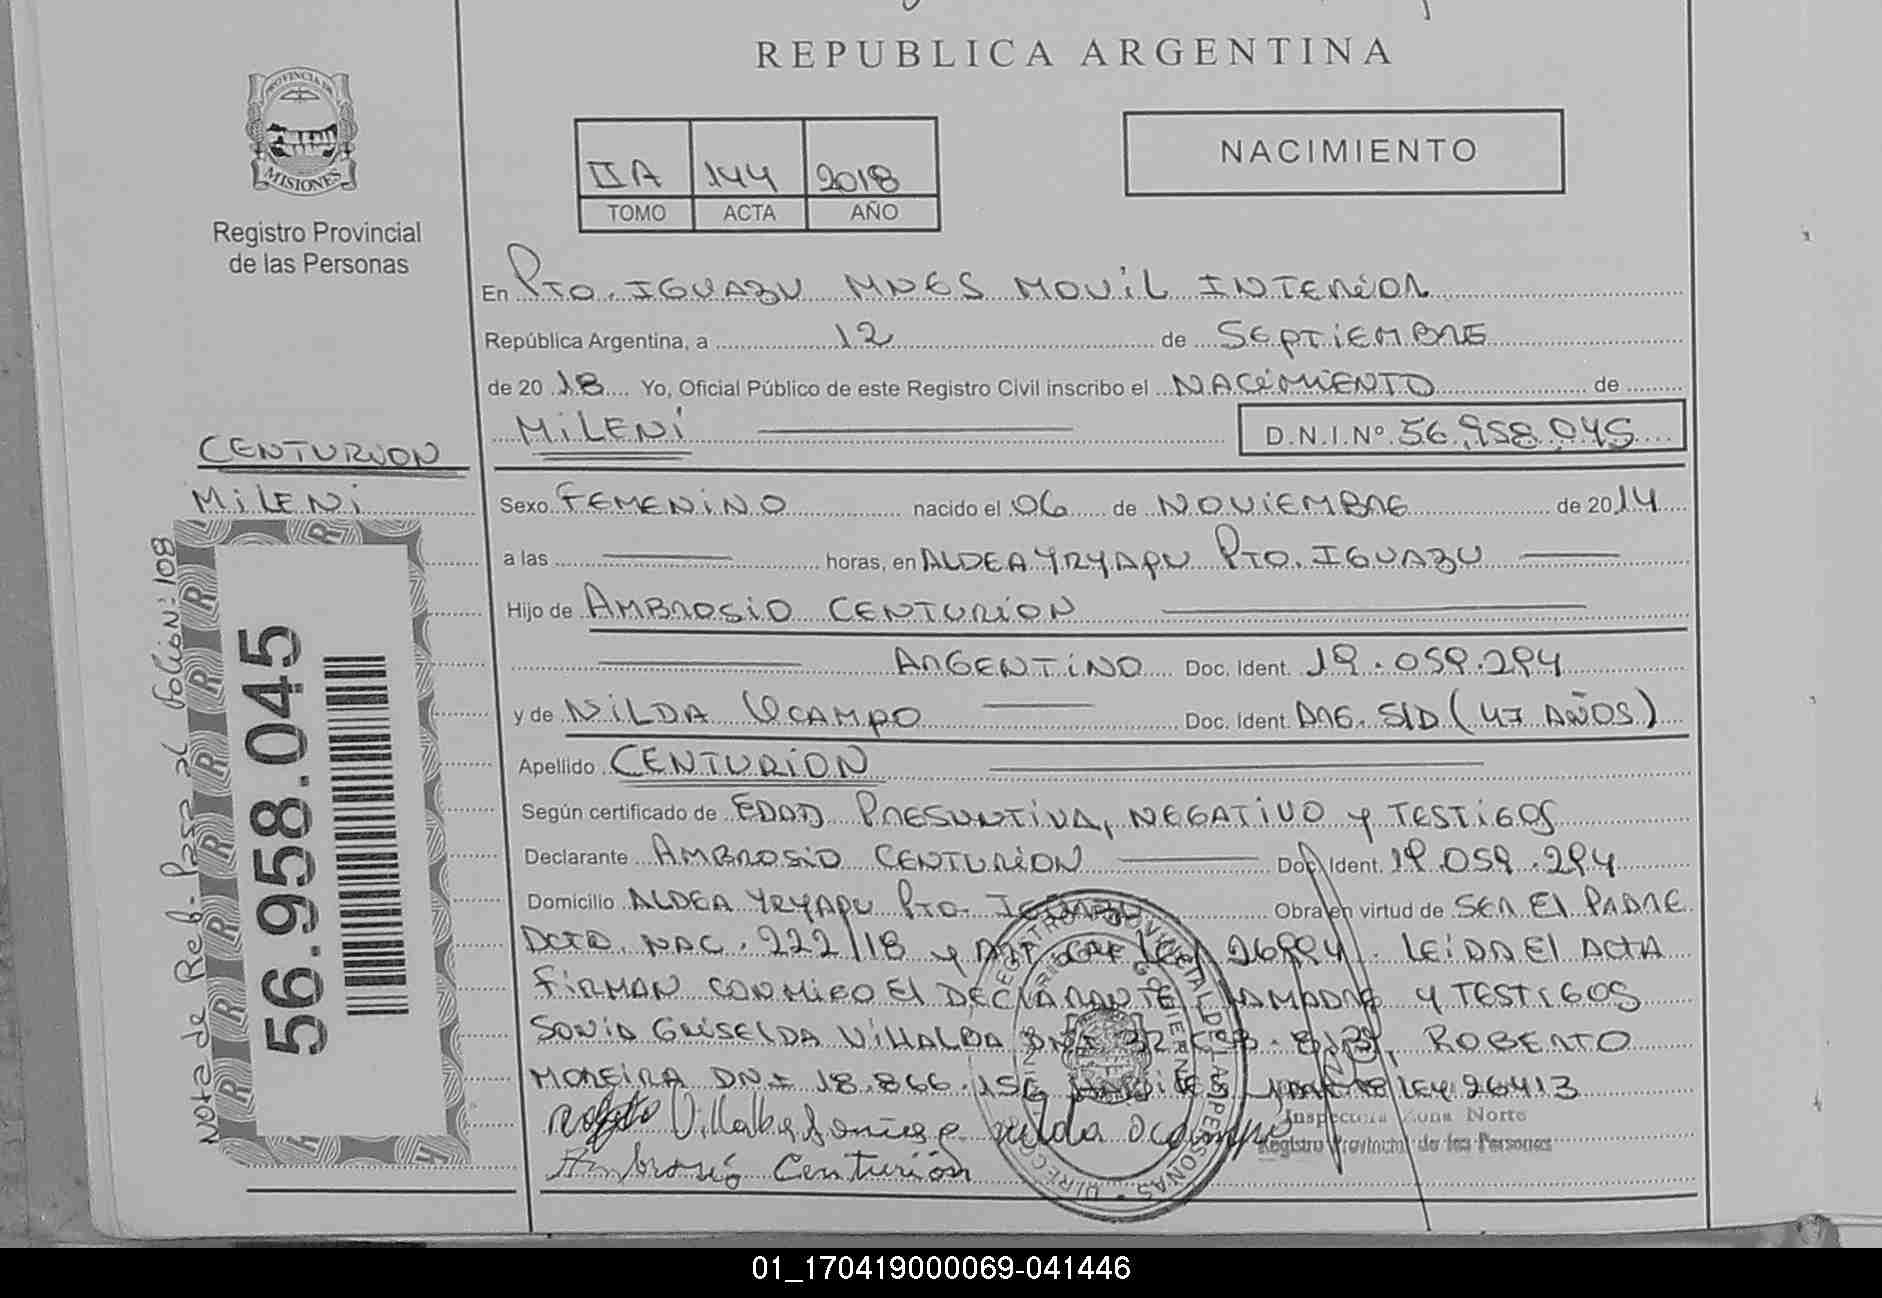 REPUBLICA ARGENTINA
PROVINCIA DE
MISIONES
Registro Provincial
de las Personas
IIA 144 2018
TOMO ACTA AÑO
NACIMIENTO
En Pto. IGUAZU MNES MOVIL INTERIOR
República Argentina, a 12 de SEPTIEMBRE
de 20 18 Yo, Oficial Público de este Registro Civil inscribo el NACIMIENTO de
MILENI D.N.I.Nº 56.958.045
CENTURION
MILENI
Sexo FEMENINO nacido el 06 de NOVIEMBRE de 2014
a las horas, en ALDEA YRYAPU Pto. IGUAZU
Hijo de AMBROSIO CENTURION
ARGENTINO Doc. Ident. 19.059.294
y de NILDA OCAMPO Doc. Ident. ARG. S/D (47 AÑOS)
Apellido CENTURION
Según certificado de EDAD PRESUNTIVA, NEGATIVO y TESTIGOS
Declarante AMBROSIO CENTURION Doc. Ident. 19.059.294
Domicilio ALDEA YRYAPU Pto. IGUAZU Obra en virtud de SER El PADRE
DCTO. NAC. 222/18 y LEIDA El ACTA
FIRMAN CONMIGO El DECLARANTE LA MADRE y TESTIGOS
SONIA GRISELDA VILLALBA DNI ROBERTO
MOREIRA DNI 18.866.156 LEY 26413
Villalba Sonia G. nilda ocampo
Ambrosio Centurión
Inspectora Zona Norte
Registro Provincial de las Personas
56.958.045
Nota de Ref. Pasa al folion: 108
01_170419000069-041446